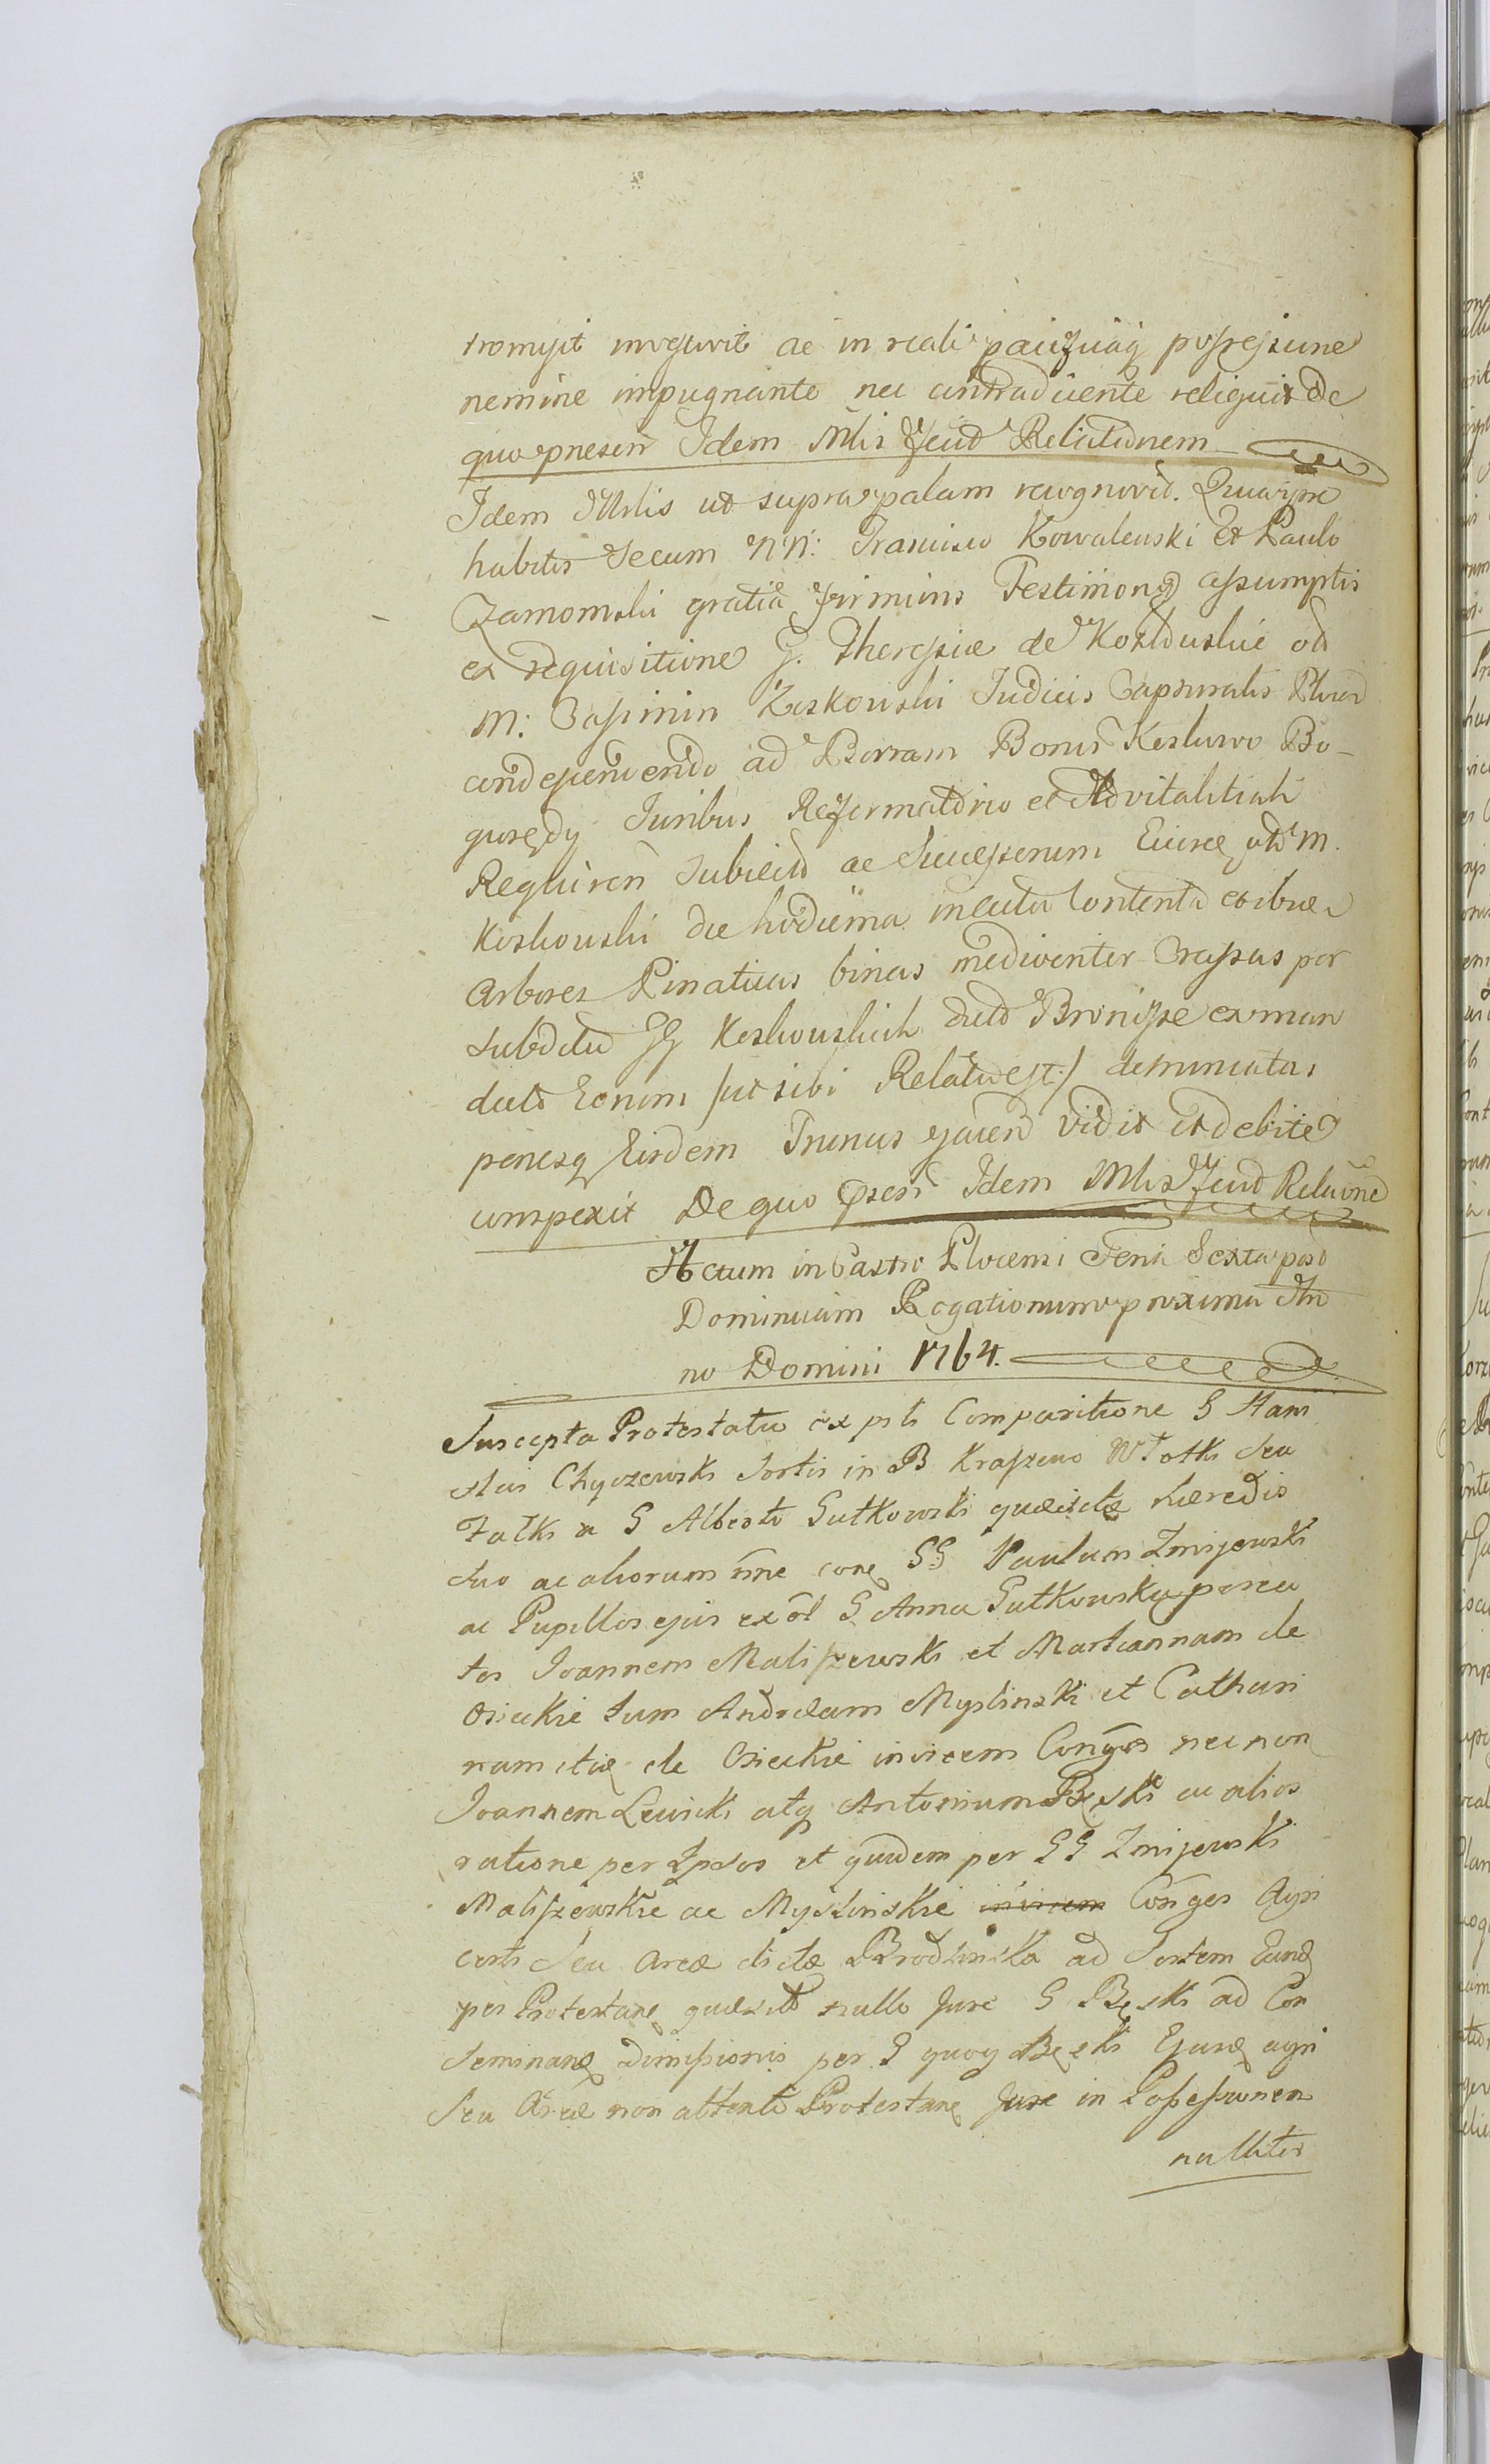 tromisit investivit ac in reali pacificaq possessione
nemine impugnante nec contradicente reliquit De
quo praesen Idem Mlis fecid Relationem
Idem Mlis ut supra palam recognovid. Quia ipse
habitis secum NN: Francisco Kowalewski et Paulo
Zamomski gratia firmioris Testimony assumptis
ex requisitione G. Theressiae de
M: Judicis Capturalis
condescendendo ad Bonam Bonis Koskowo Bo-
gurzędy Juribus Reformatorio et Advitalitiali
subiectd ac Successorum
Koskowski die hodierna contenta
Arbores Pinaticas binas mediocriter crassas per
subditd GG Koskowskich de Bronisze ex man
dato Eorum /ut sibi Relatd est:/
penesq Eisdem Truncus jacend vidit et debite
conspexit De quo prsen Idem Mlis fecid Relaone
Actum in Castro Plocensi Feria Sexta post
Dominicam Rogationum proxima An
no Domini 1764.
Suscepta Protestatio ex psli Comparitione G Stani
slai Chyczewski Sortis in B Kraszewo Wtotki seu
Falki a G Alberto Gutkowski quaesitae haeredis
suo ac aliorum nne cone GG Paulum Zmijewski
ac Pupillos ejus ex ol G Anna Gutkowska procrea
tos Joannem Maliszewski et Mariannam de
Osieckie tum Andream Myslinski et Cathari
nam itid de Osieckie invicem Conges nec non
Joannem Lewicki atq Antonium Bęski ac alios
ratione per Ipsos et quidem per GG Zmijewski
Maliszewskie ac Myslinskie Conges Agri
certi seu Areae dictae Brodzinska ad Sortem Eand
per Protestane quaesitd nullo Jure G Bęski ad Con
seminand dimissionis per G quoq Bęski Ejusd agri
seu Areae non attento Protestane Jure in Possessionem
nulliter